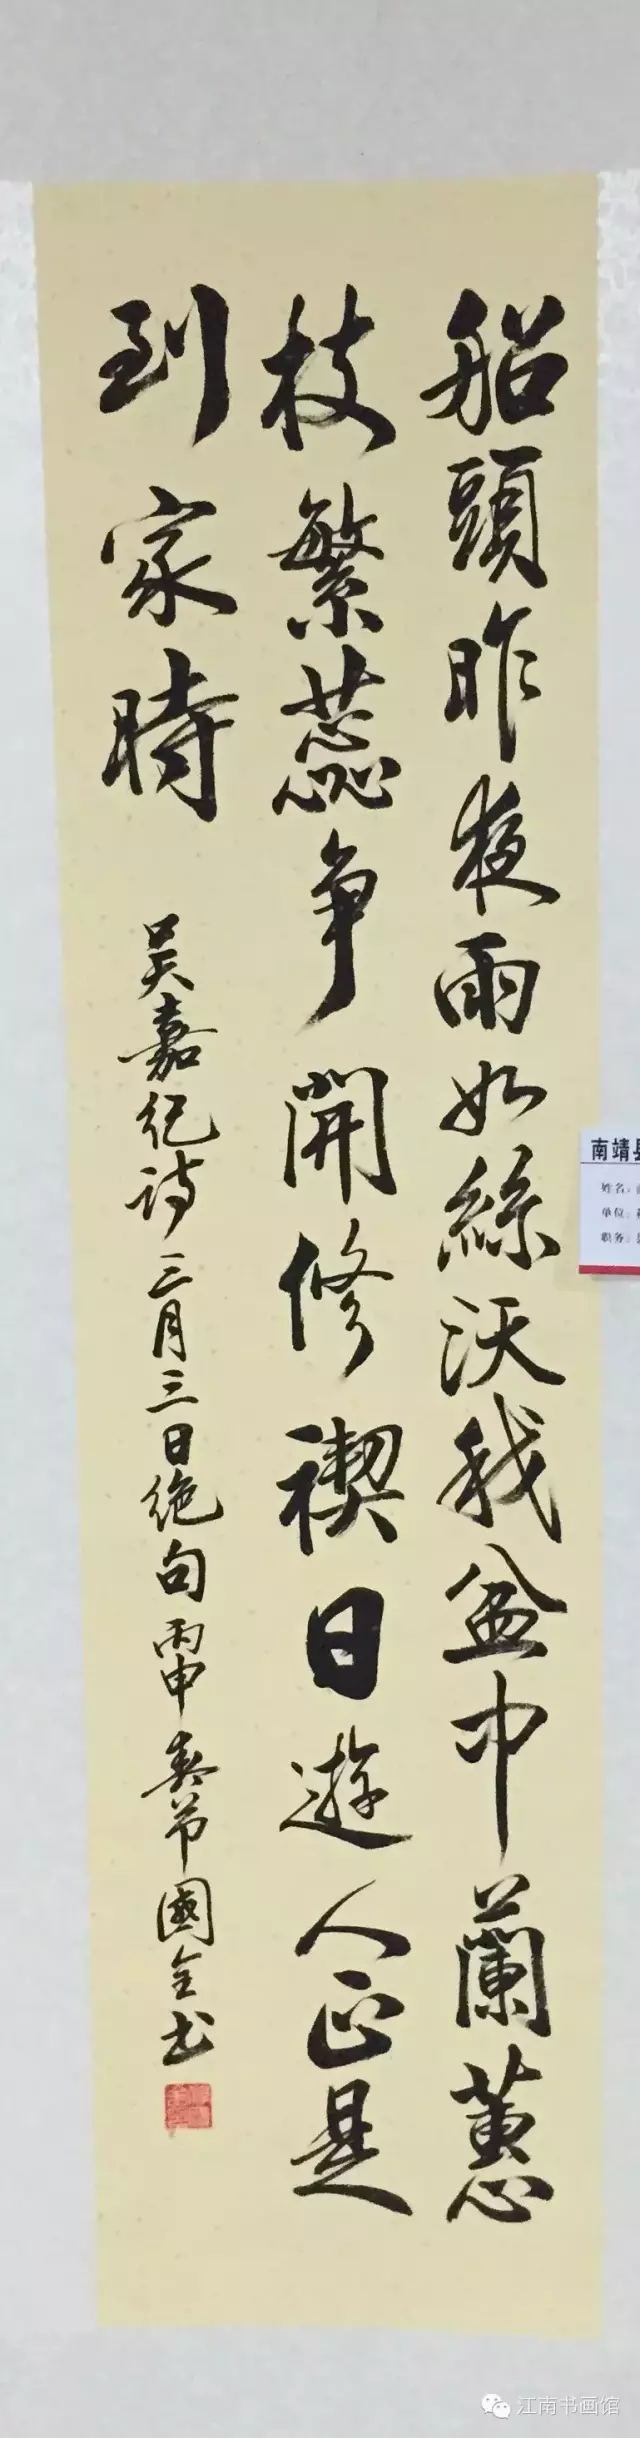 船頭昨夜雨如絲沃我盆中蘭蕙
枝繁蕊争開修禊日遊人正是
到家時
吴嘉纪诗三月三日绝句丙申春节國全书
南靖县
姓名：
单位：
职务：
江南书画馆